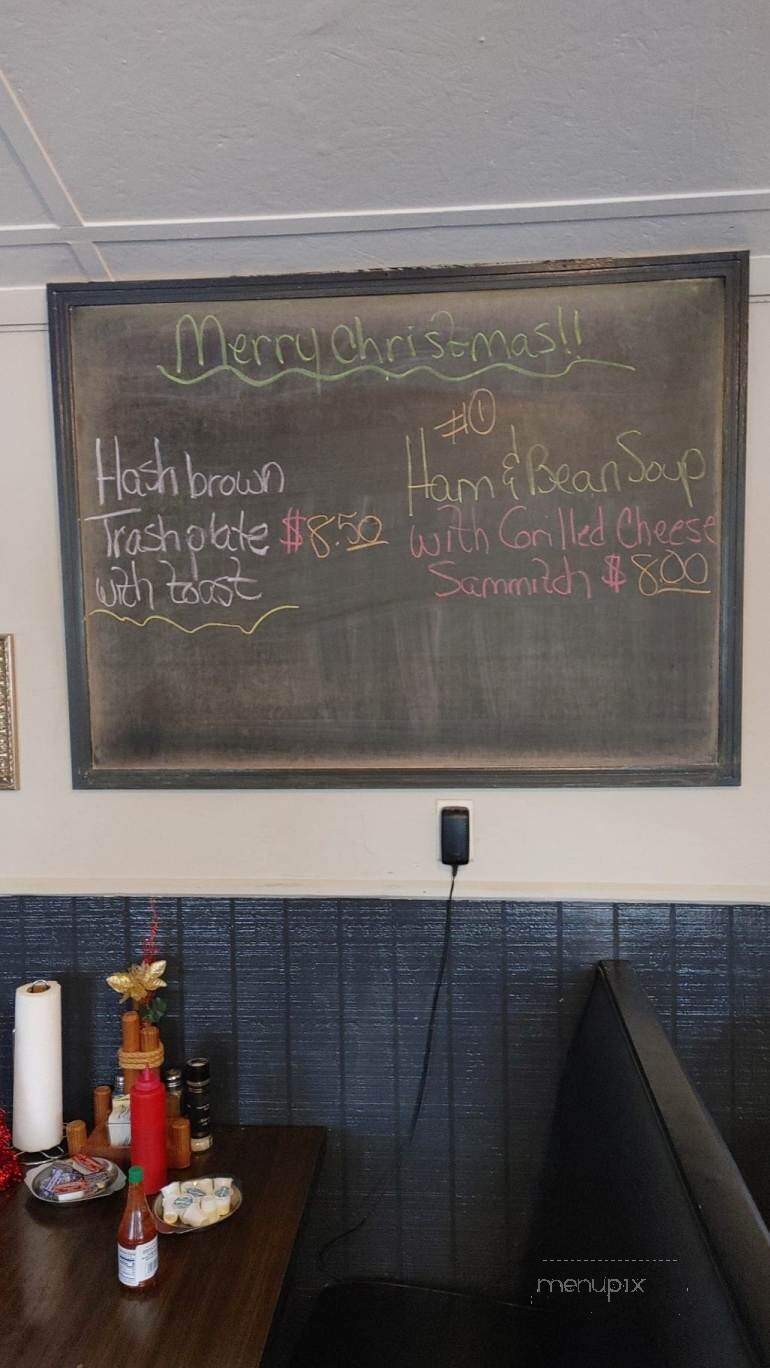 Merry Christmas!!
Hash brown
Trash plate $8.50
with toast
#1
Ham & Bean Soup
with Grilled Cheese
Sammitch $8.00
menupix